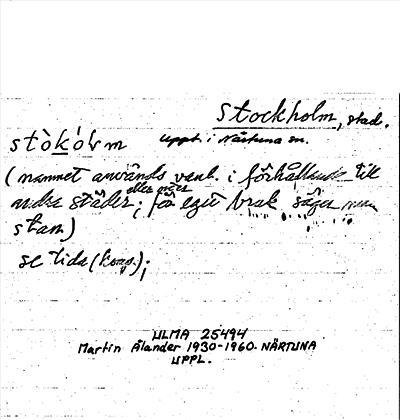 Stockholm, stad.
Uppt. i Närtuna sn.
stòkó̀rm
(namnet används vanl. i förhållande till
andra städer; för eget bruk säger man
eller mier
stan)
se tida (konj.);
ULMA 25494
Martin Ålander 1930-1960. NÄRTUNA
UPPL.